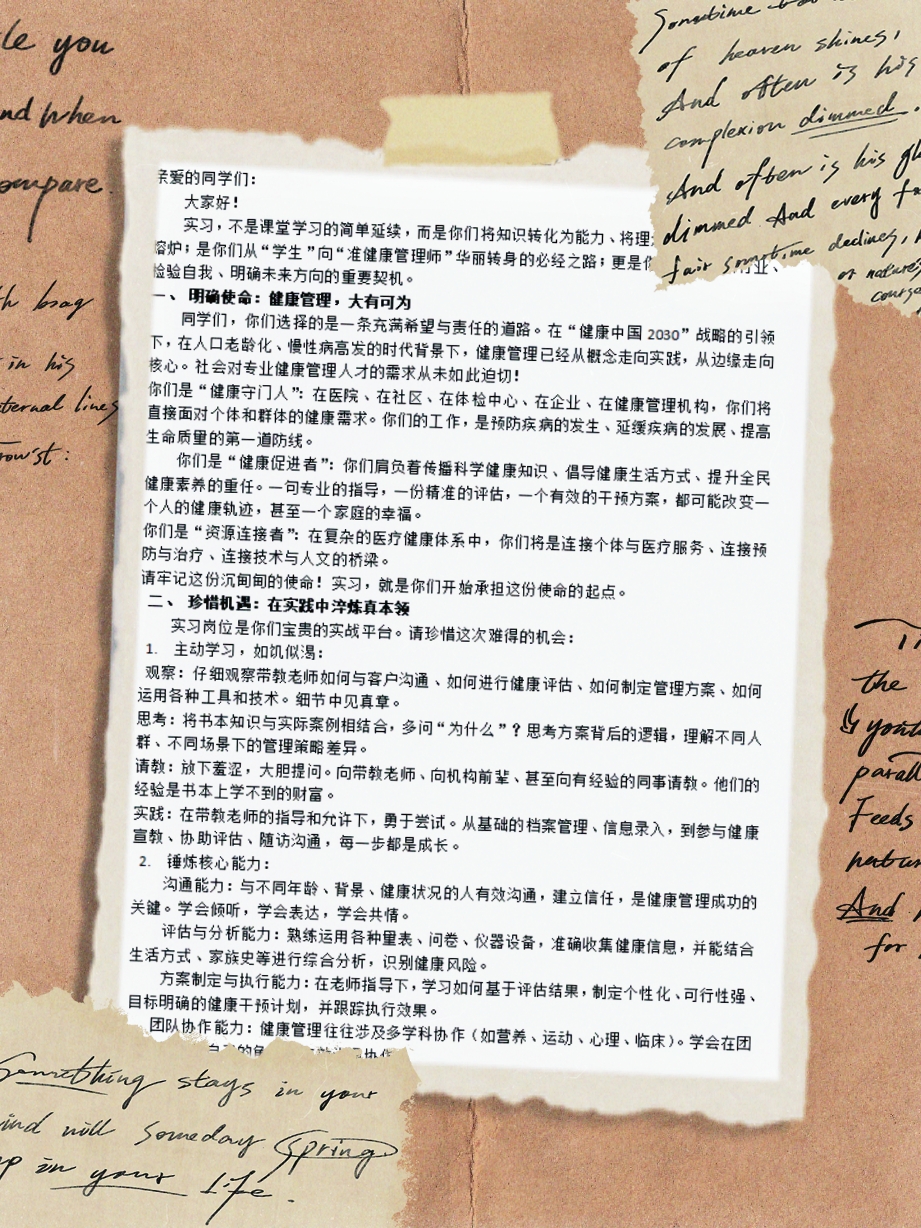 le you
and when
compare.
Sometime
of heaven shines,
And often is his
complexion dimmed.
And often is his
dimmed And every
fair sometime declines,
or nature's
course
brag
in his
eternal lines
row'st:
亲爱的同学们：
大家好！
实习，不是课堂学习的简单延续，而是你们将知识转化为能力、将理
熔炉；是你们从“学生”向“准健康管理师”华丽转身的必经之路；更是你
检验自我、明确未来方向的重要契机。
一、 明确使命：健康管理，大有可为
同学们，你们选择的是一条充满希望与责任的道路。在“健康中国 2030”战略的引领
下，在人口老龄化、慢性病高发的时代背景下，健康管理已经从概念走向实践，从边缘走向
核心。社会对专业健康管理人才的需求从未如此迫切！
你们是“健康守门人”：在医院、在社区、在体检中心、在企业、在健康管理机构，你们将
直接面对个体和群体的健康需求。你们的工作，是预防疾病的发生、延缓疾病的发展、提高
生命质量的第一道防线。
你们是“健康促进者”：你们肩负着传播科学健康知识、倡导健康生活方式、提升全民
健康素养的重任。一句专业的指导，一份精准的评估，一个有效的干预方案，都可能改变一
个人的健康轨迹，甚至一个家庭的幸福。
你们是“资源连接者”：在复杂的医疗健康体系中，你们将是连接个体与医疗服务、连接预
防与治疗、连接技术与人文的桥梁。
请牢记这份沉甸甸的使命！实习，就是你们开始承担这份使命的起点。
二、 珍惜机遇：在实践中淬炼真本领
实习岗位是你们宝贵的实战平台。请珍惜这次难得的机会：
1. 主动学习，如饥似渴：
观察：仔细观察带教老师如何与客户沟通、如何进行健康评估、如何制定管理方案、如何
运用各种工具和技术。细节中见真章。
思考：将书本知识与实际案例相结合，多问“为什么”？思考方案背后的逻辑，理解不同人
群、不同场景下的管理策略差异。
请教：放下羞涩，大胆提问。向带教老师、向机构前辈、甚至向有经验的同事请教。他们的
经验是书本上学不到的财富。
实践：在带教老师的指导和允许下，勇于尝试。从基础的档案管理、信息录入，到参与健康
宣教、协助评估、随访沟通，每一步都是成长。
2. 锤炼核心能力：
沟通能力：与不同年龄、背景、健康状况的人有效沟通，建立信任，是健康管理成功的
关键。学会倾听，学会表达，学会共情。
评估与分析能力：熟练运用各种量表、问卷、仪器设备，准确收集健康信息，并能结合
生活方式、家族史等进行综合分析，识别健康风险。
方案制定与执行能力：在老师指导下，学习如何基于评估结果，制定个性化、可行性强、
目标明确的健康干预计划，并跟踪执行效果。
团队协作能力：健康管理往往涉及多学科协作（如营养、运动、心理、临床）。学会在团
the
Feeds
And
for
Something stays in your
mind will someday Spring
up in your life.